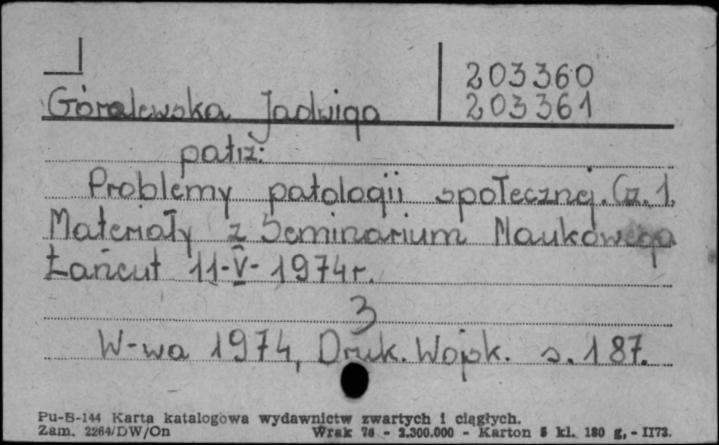 203360
203361
Góralewska Jadwiga
patrz:
Problemy patologii społecznej. Cz. 1.
Materiały z Seminarium Naukowego
Łańcut 11-V-1974r.
3
W-wa 1974, Druk. Wojsk. s. 187.
Pu-B-144 Karta katalogowa wydawnictw zwartych i ciągłych.
Zam. 2264/DW/On Wrak 76 - 2.300.000 - Karton 5 kl. 180 g, - II73.